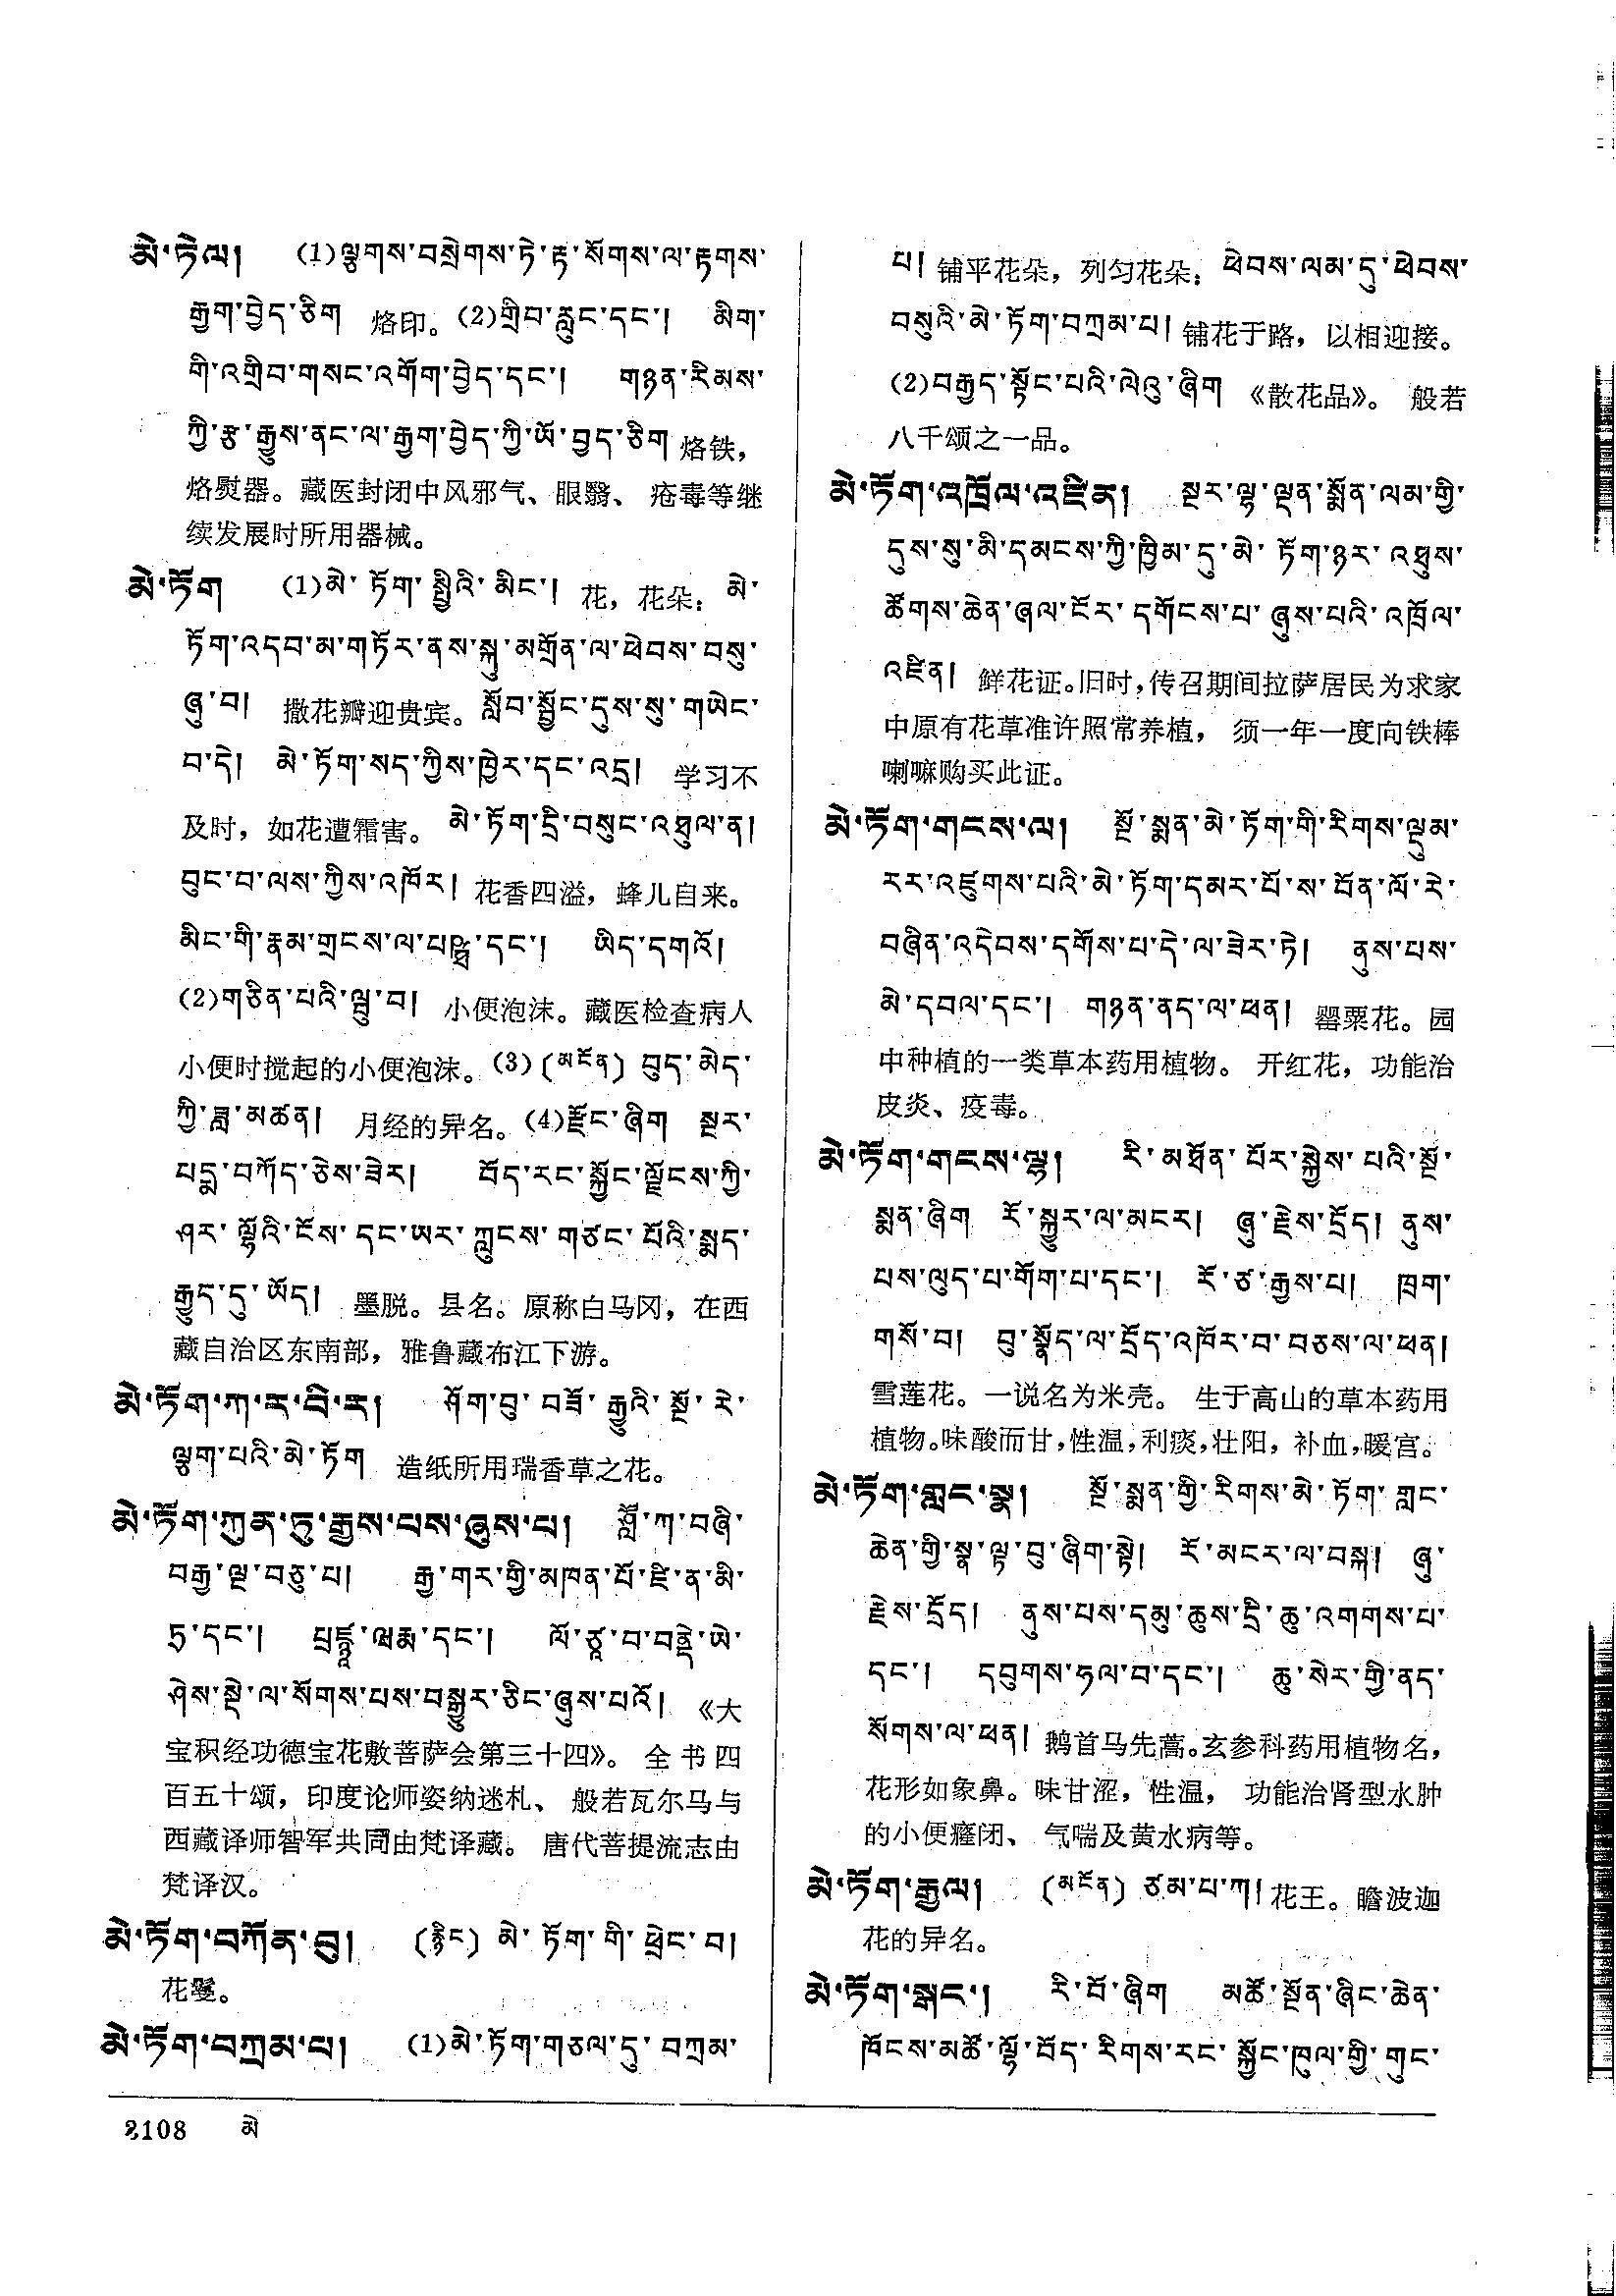 མེ་ཏེལ། (1)ལྕགས་བསྲེགས་ཏེ་རྟ་སོགས་ལ་རྟགས་
རྒྱག་བྱེད་ཅིག 烙印。(2)གྲིབ་རླུང་དང་། མིག་
གི་འགྲིབ་གསང་འགོག་བྱེད་དང་། གཉན་རིམས་
ཀྱི་རྩ་རྒྱུས་ནང་ལ་རྒྱག་བྱེད་ཀྱི་ཡོ་བྱད་ཅིག 烙铁，
烙熨器。藏医封闭中风邪气、眼翳、疮毒等继
续发展时所用器械。
མེ་ཏོག (1)མེ་ཏོག་སྤྱིའི་མིང་། 花，花朵：མེ་
ཏོག་འདབ་མ་གཏོར་ནས་སྐུ་མགྲོན་ལ་ཕེབས་བསུ་
ཞུ་བ། 撒花瓣迎贵宾。སློབ་སྦྱོང་དུས་སུ་གཡེང་
བ་དེ། མེ་ཏོག་སད་ཀྱིས་ཁྱེར་དང་འདྲ། 学习不
及时，如花遭霜害。མེ་ཏོག་དྲི་བསུང་འཐུལ་ན།
བུང་བ་ལས་ཀྱིས་འཁོར། 花香四溢，蜂儿自来。
མིང་གི་རྣམ་གྲངས་ལ་པཥྤ་དང་། ཡིད་དགའོ།
(2)གཅིན་པའི་ལྦུ་བ། 小便泡沫。藏医检查病人
小便时搅起的小便泡沫。(3)(མངོན) བུད་མེད་
ཀྱི་ཟླ་མཚན། 月经的异名。(4)རྫོང་ཞིག སྔར་
པདྨ་བཀོད་ཅེས་ཟེར། བོད་རང་སྐྱོང་ལྗོངས་ཀྱི་
ཤར་ལྷོའི་ངོས་དང་ཡར་ཀླུངས་གཙང་པོའི་སྨད་
རྒྱུད་དུ་ཡོད། 墨脱。县名。原称白马冈，在西
藏自治区东南部，雅鲁藏布江下游。
མེ་ཏོག་ཀ་ར་བི་ར། ཤོག་བུ་བཟོ་རྒྱུའི་སྔོ་རེ་
ལྕག་པའི་མེ་ཏོག 造纸所用瑞香草之花。
མེ་ཏོག་ཀུན་ཏུ་རྒྱས་པས་ཞུས་པ། ཤློ་ཀ་བཞི་
བརྒྱ་ལྔ་བཅུ་པ། རྒྱ་གར་གྱི་མཁན་པོ་ཛི་ན་མི་
ཏྲ་དང་། པྲཛྙཱ་ཝརྨ་དང་། ལོ་ཙཱ་བ་བནྡེ་ཡེ་
ཤེས་སྡེ་ལ་སོགས་པས་བསྒྱུར་ཅིང་ཞུས་པའོ། 《大
宝积经功德宝花敷菩萨会第三十四》。全书四
百五十颂，印度论师姿纳迷札、般若瓦尔马与
西藏译师智军共同由梵译藏。唐代菩提流志由
梵译汉。
མེ་ཏོག་བཀོན་བུ། (རྙིང) མེ་ཏོག་གི་ཕྲེང་བ།
花鬘。
མེ་ཏོག་བཀྲམ་པ། (1)མེ་ཏོག་གཅལ་དུ་བཀྲམ་
པ། 铺平花朵，列匀花朵：ཕེབས་ལམ་དུ་ཕེབས་
བསུའི་མེ་ཏོག་བཀྲམ་པ། 铺花于路，以相迎接。
(2)བརྒྱད་སྟོང་པའི་ལེའུ་ཞིག 《散花品》。般若
八千颂之一品。
མེ་ཏོག་འཁྲོལ་འཛིན། སྔར་ལྷ་ལྡན་སྨོན་ལམ་གྱི་
དུས་སུ་མི་དམངས་ཀྱི་ཁྱིམ་དུ་མེ་ཏོག་ཉར་འཐུས་
ཚོགས་ཆེན་ཞལ་ངོར་དགོངས་པ་ཞུས་པའི་འཁྲོལ་
འཛིན། 鲜花证。旧时，传召期间拉萨居民为求家
中原有花草准许照常养植，须一年一度向铁棒
喇嘛购买此证。
མེ་ཏོག་གངས་ལ། སྔོ་སྨན་མེ་ཏོག་གི་རིགས་ལྡུམ་
རར་འཛུགས་པའི་མེ་ཏོག་དམར་པོ་ས་བོན་ལོ་རེ་
བཞིན་འདེབས་དགོས་པ་དེ་ལ་ཟེར་ཏེ། ནུས་པས་
མེ་དབལ་དང་། གཉན་ནད་ལ་ཕན། 罂粟花。园
中种植的一类草本药用植物。开红花，功能治
皮炎、疫毒。
མེ་ཏོག་གངས་ལྷ། རི་མཐོན་པོར་སྐྱེས་པའི་སྔོ་
སྨན་ཞིག རོ་སྐྱུར་ལ་མངར། ཞུ་རྗེས་དྲོད། ནུས་
པས་ལུད་པ་གོག་པ་དང་། རོ་ཙ་རྒྱས་པ། ཁྲག་
གསོ་བ། བུ་སྣོད་ལ་དྲོད་འཁོར་བ་བཅས་ལ་ཕན།
雪莲花。一说名为米壳。生于高山的草本药用
植物。味酸而甘，性温，利痰，壮阳，补血，暖宫。
མེ་ཏོག་གླང་སྣ། སྔོ་སྨན་གྱི་རིགས་མེ་ཏོག་གླང་
ཆེན་གྱི་སྣ་ལྟ་བུ་ཞིག་སྟེ། རོ་མངར་ལ་བསྐ། ཞུ་
རྗེས་དྲོད། ནུས་པས་དམུ་ཆུས་དྲི་ཆུ་འགགས་པ་
དང་། དབུགས་ཧལ་བ་དང་། ཆུ་སེར་གྱི་ནད་
སོགས་ལ་ཕན། 鹅首马先蒿。玄参科药用植物名，
花形如象鼻。味甘涩，性温，功能治肾型水肿
的小便癃闭、气喘及黄水病等。
མེ་ཏོག་རྒྱལ། (མངོན) ཙམ་པ་ཀ། 花王。瞻波迦
花的异名。
མེ་ཏོག་སྒང་། རི་བོ་ཞིག མཚོ་སྔོན་ཞིང་ཆེན་
ཁོངས་མཚོ་ལྷོ་བོད་རིགས་རང་སྐྱོང་ཁུལ་གྱི་གུང་
2108 མེ